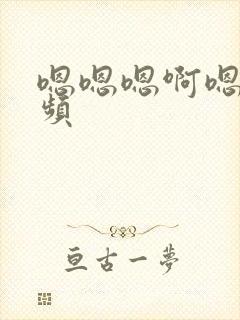 嗯嗯嗯啊嗯
频
亘古一梦